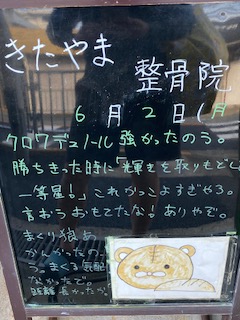 きたやま
整骨院
6月2日(月
クロワデュノール強かったのう。
勝ちきった時に「輝きを取りもどし
一等星!」これかっこよすぎやろ。
言おうおもてたな!ありやぞ。
まくり狼あ
かんかったの
つ。まくる気配
なかったで。
距離長かったか